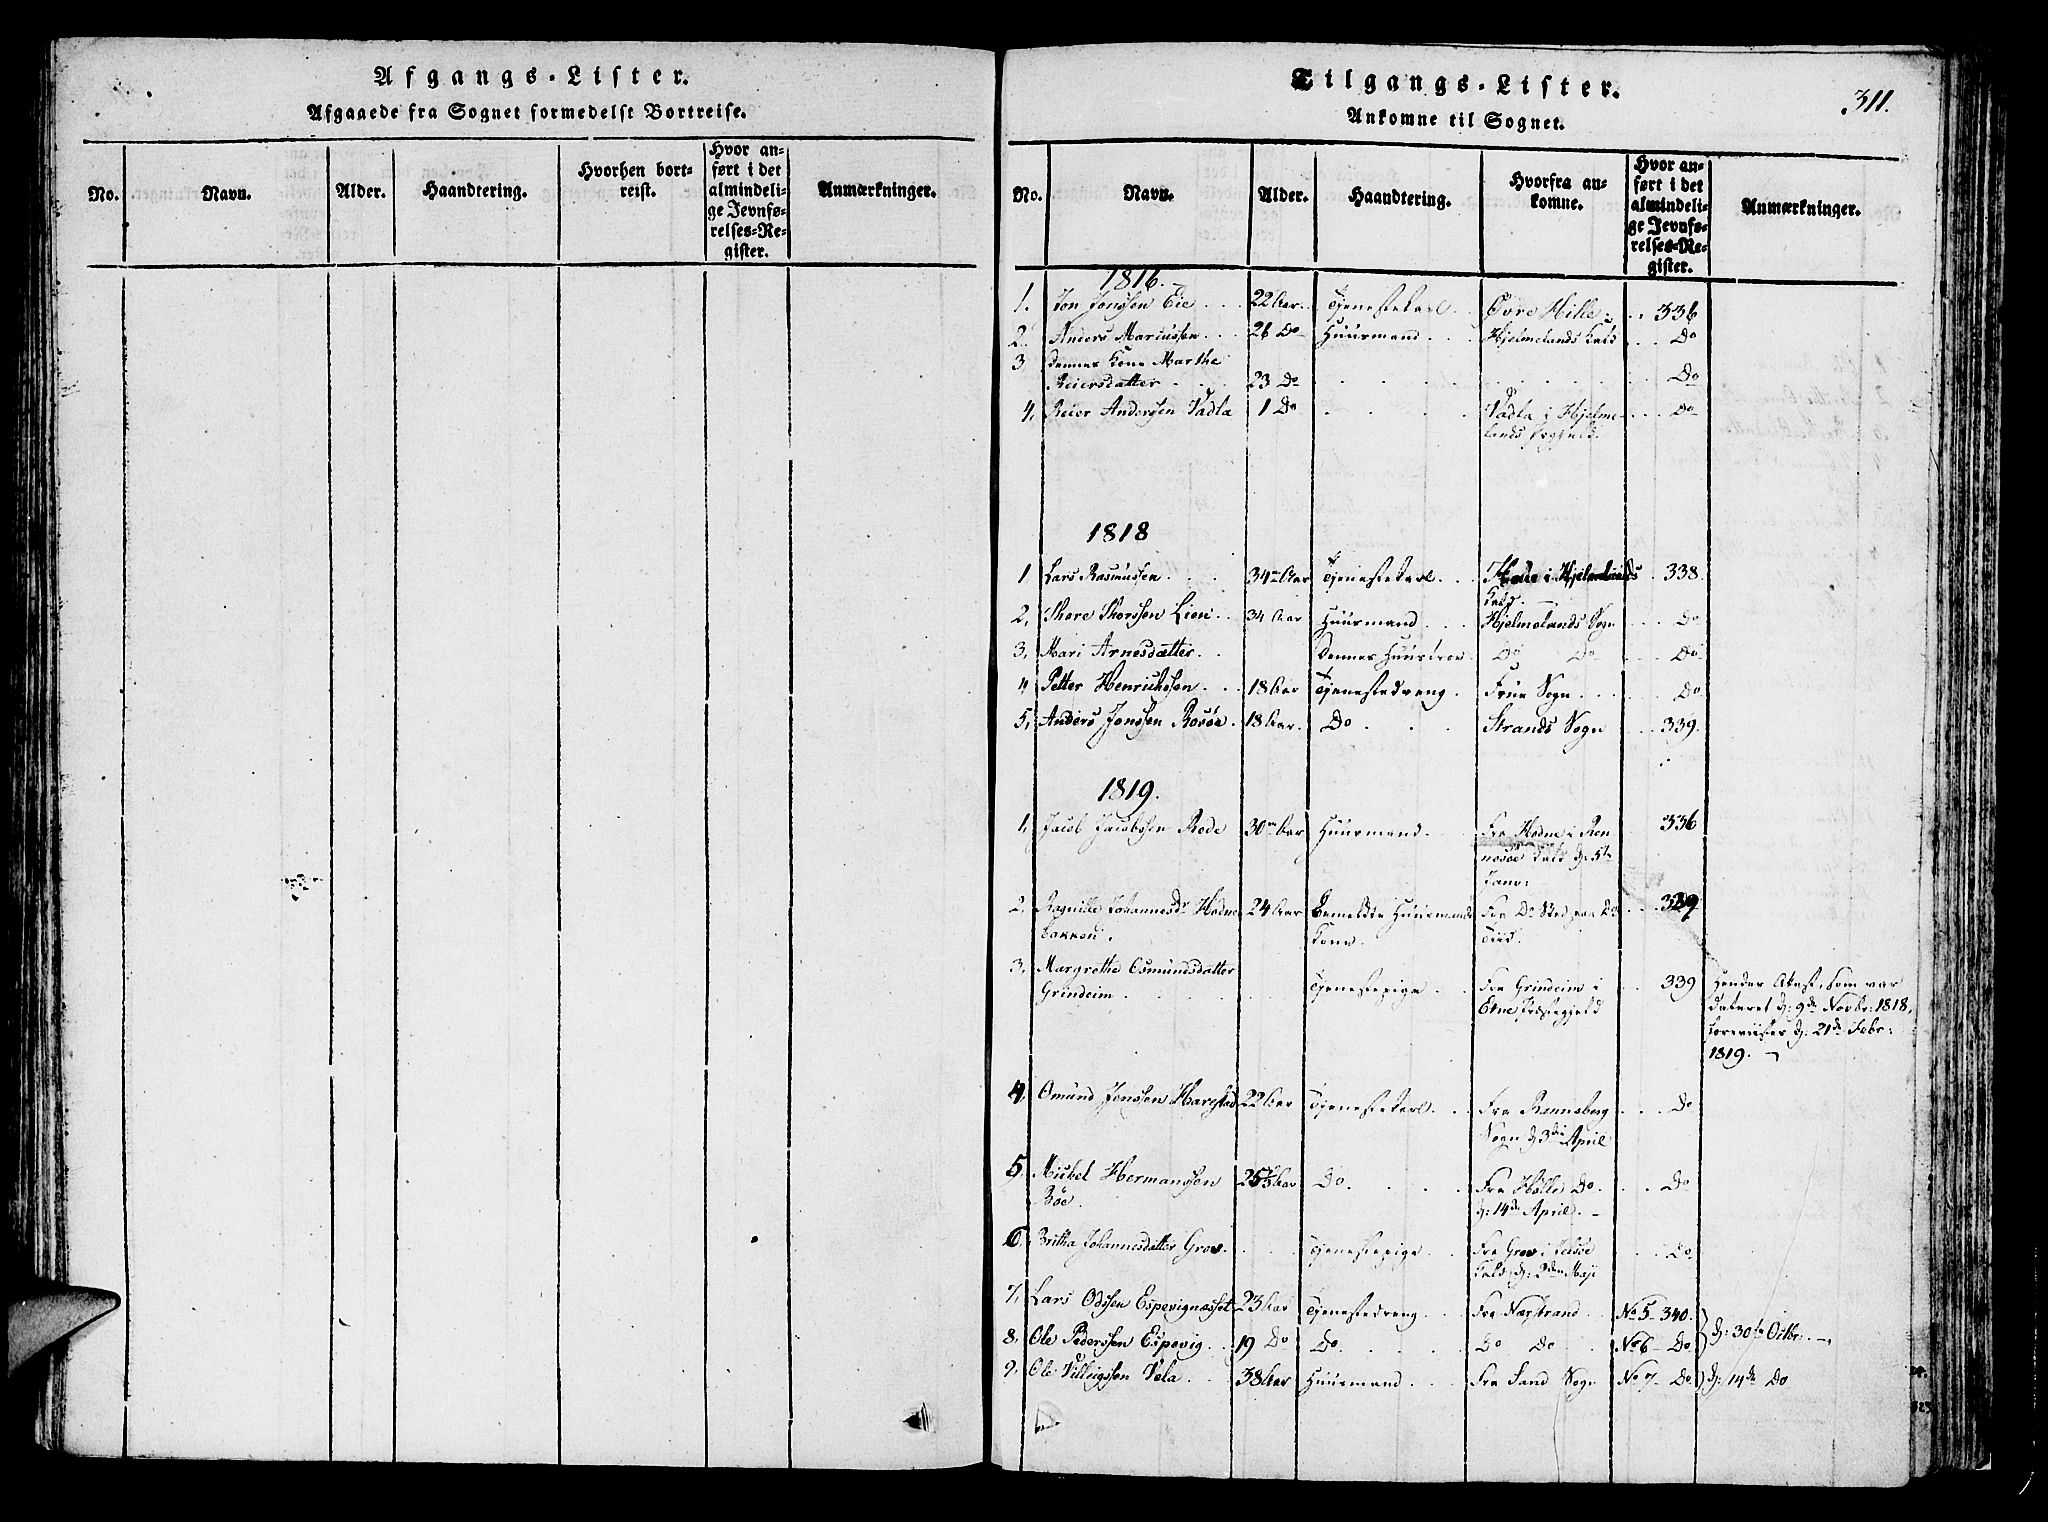 Afgangs-Lister.
Afgaaede fra Sognet formedelst Bortreise.
No. Navn. Alder. Haandtering. Hvorhen bortreist. Hvor anført i det almindelige Jevnførelses-Register. Anmærkninger.
Tilgangs-Lister.
311.
Ankomne til Sognet.
No. Navn. Alder. Haandtering. Hvorfra ankomne. Hvor anført i det almindelige Jevnførelses-Register. Anmærkninger.
1816.
1. Jon Jonssen Eie 22 Aar. Tjenestekarl Øvre Hille 336
2. Anders Mariussen 26 Do Huusmand Hjelmelands Kald Do
3 dennes Kone Marthe
Reiersdatter 23 Do Do
4. Reier Anderssen Vadla 1 Do Vadla i Hjelme- Do
lands
1818
1 Lars Rasmussen 34 Aar Tjenestekarl i Hjelmelands 338.
Kald.
2. Thore Thorssen Lien 34 Aar Huusmand Hjelmelands Sogn Do
3. Mari Arnesdatter Dennes Huustroe Do Do Do
4 Petter Henrichsen 18 Aar Tjenestedreng Frue Sogn Do
5. Anders Jonssen Rosøe 18 Aar. Do Strands Sogn 339.
1819.
1. Jacob Jacobssen Rode 30 Aar Huusmand Fra Hodne i Ren 336
nesøe Kald d: 5te
Janv:
2. Ragnille Johannesdr Hodne 24 Aar Bemeldte Huusmands Fra Do Sted
bakken. Kone Tiid.
3. Margrethe Osmundsdatter Tjenestepige Fra Grindeim i 339 Hendes Attest, som var
Grindeim Etne Præstegjeld dateret d: 9de Novbr: 1818,
foreviistes d: 21de Febr:
1819.
4. Omund Jonssen Harestad 22 Aar Tjenestekarl Fra Rennsberg Do
Sogn d 3die April
5. Mickel Hermanssen 25 Aar Do Fra Hølle Do Do
Bøe. d: 14de April.
6. Britha Johannesdatter Grov. Tjenestepige Fra Grov i Jelsøe Do
Kald d: Maji
7. Lars Odssen Espevignæsset 23 Aar Tjenestedreng Fra Nærstrand No 5 340.
8. Ole Pederssen Espevig 19 Do Do Do Do No 6 Do d: 30te Octbr:
9. Ole Villeigssen Vela 38 Aar Huusmand Fra Sand Sogn No 7 Do d: 14de Do